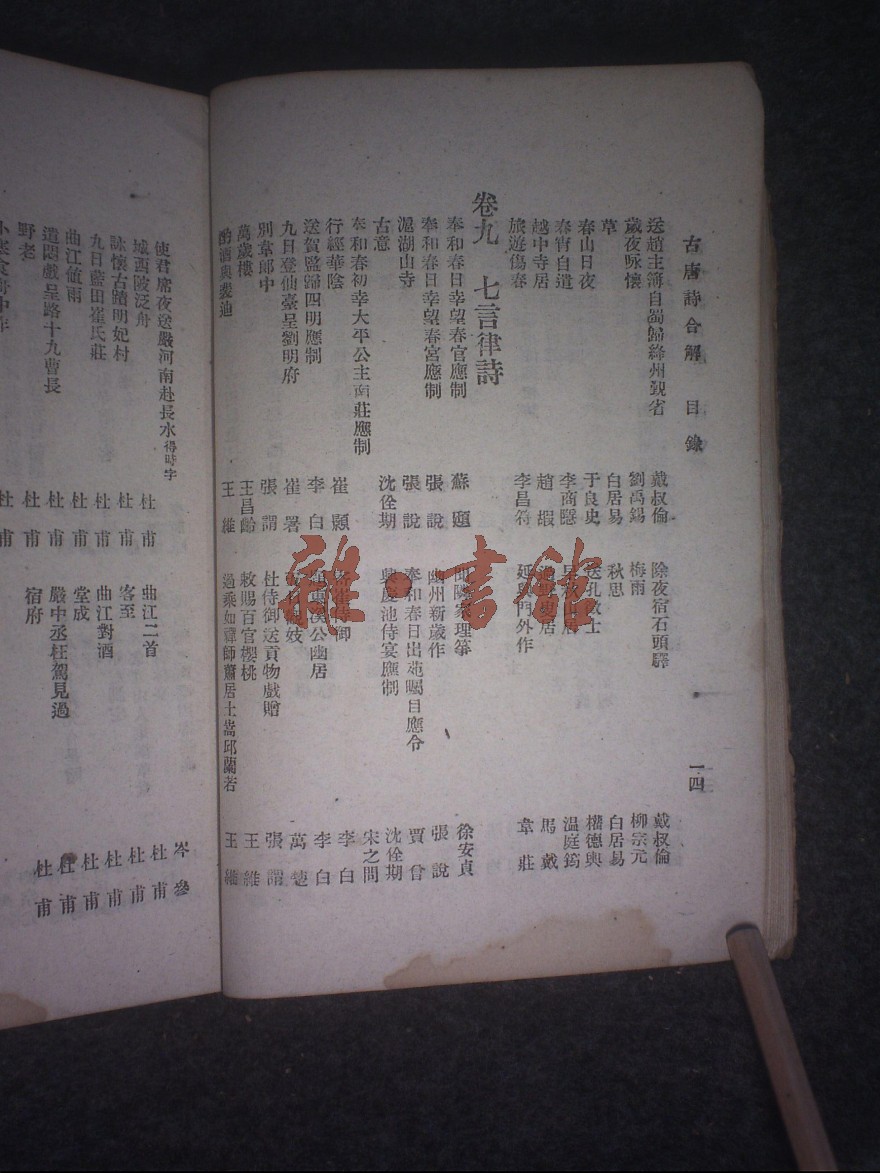 古唐詩合解 目錄 一四
送趙主簿自蜀歸絳州覲省 戴叔倫 除夜宿石頭驛 戴叔倫
歲夜咏懷 劉禹錫 梅雨 柳宗元
草 白居易 秋思 白居易
春山日夜 于良史 送孔徵士 權德輿
春宵自遣 李商隱 溫庭筠
越中寺居 趙嘏 居 馬戴
旅遊傷春 李昌符 延興門外作 韋莊
卷九 七言律詩
奉和春日幸望春宮應制 蘇頲 聞鄰家理箏 徐安貞
奉和春日幸望春宮應制 張說 幽州新歲作 張說
㴩湖山寺 張說 奉和春日出苑矚目應令 賈曾
古意 沈佺期 興慶池侍宴應制 沈佺期
奉和春初幸太平公主南莊應制 宋之問
行經華陰 崔顥 崔侍御 李白
送賀監歸四明應制 李白 題東溪公幽居 李白
九日登仙臺呈劉明府 崔署 妓 萬楚
別韋郎中 張謂 杜侍御送貢物戲贈 張謂
萬歲樓 王昌齡 敕賜百官櫻桃 王維
酌酒與裴迪 王維 過乘如禪師蕭居士嵩邱蘭若 王維
使君席夜送嚴河南赴長水得時字 岑參
城西陂泛舟 杜甫 曲江二首 杜甫
詠懷古蹟明妃村 杜甫 客至 杜甫
九日藍田崔氏莊 杜甫 曲江對酒 杜甫
曲江值雨 杜甫 堂成 杜甫
遣悶戲呈路十九曹長 杜甫 嚴中丞枉駕見過 杜甫
野老 杜甫 宿府 杜甫
小寒食舟中作 杜甫
雜·書館